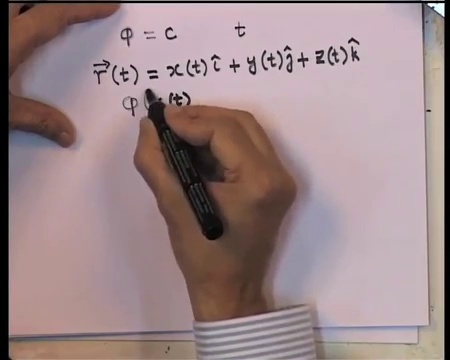 φ = c t
r⃗(t) = x(t) î + y(t) ĵ + z(t) k̂
φ (t)